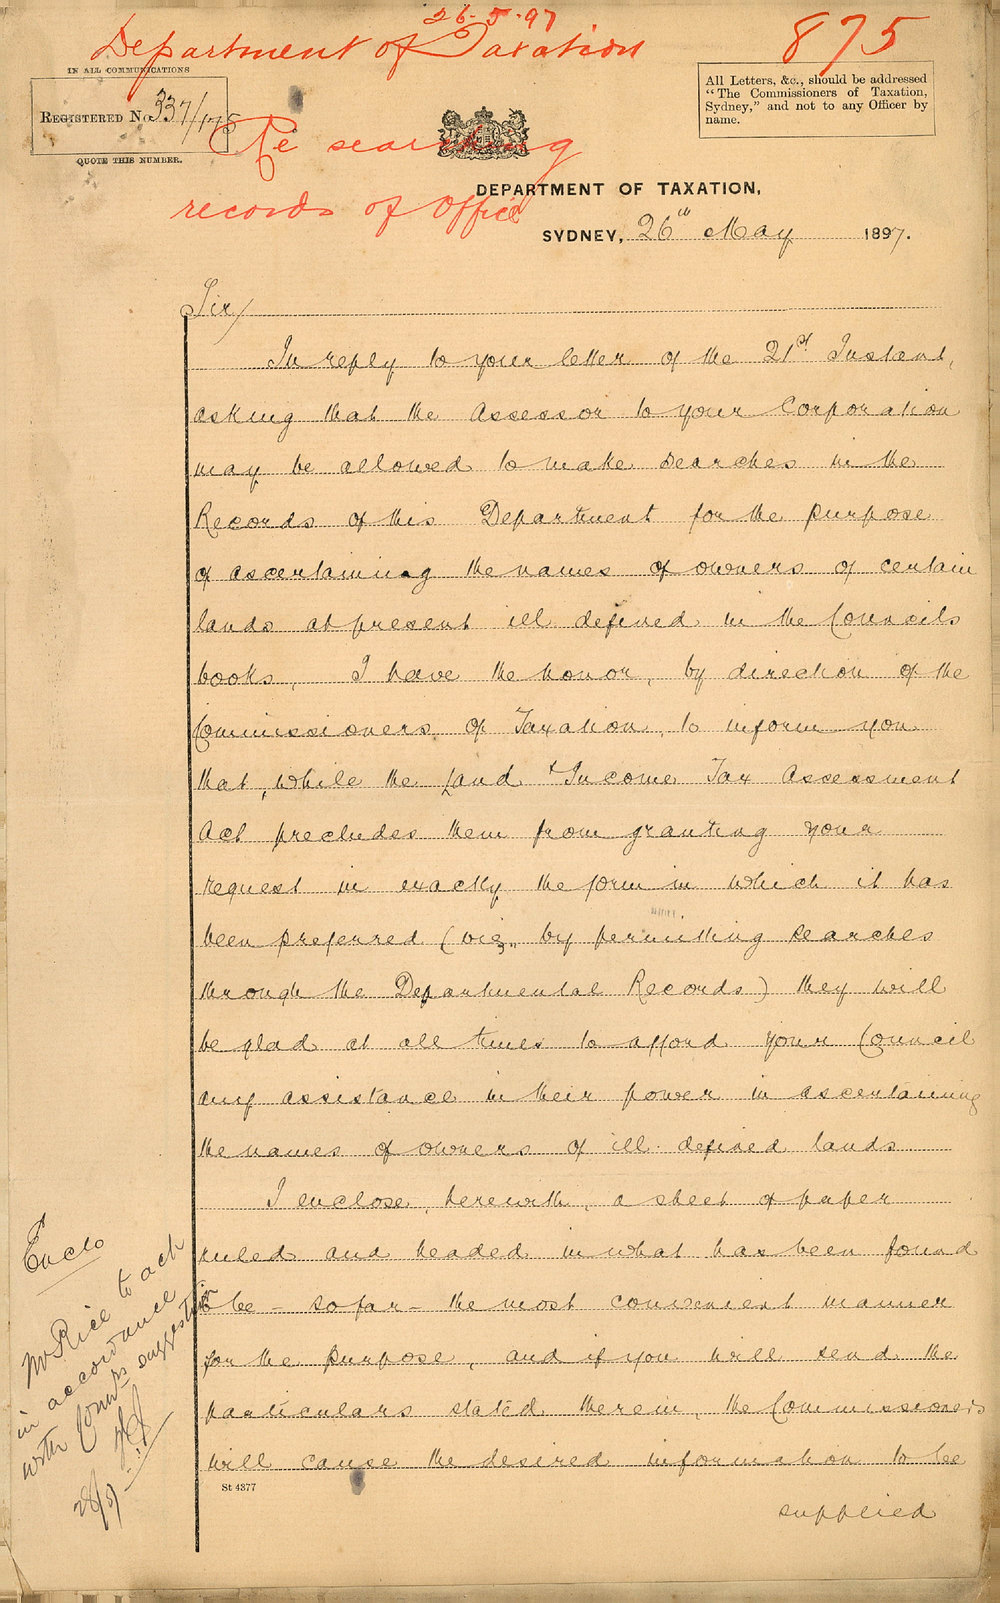 26-5-97
Department of Taxation
875
IN ALL COMMUNICATIONS
REGISTERED No. 337/175
QUOTE THIS NUMBER.
All Letters, &c., should be addressed
"The Commissioners of Taxation,
Sydney," and not to any Officer by
name.
Re searching
records of Office
DEPARTMENT OF TAXATION,
SYDNEY, 26th May 1897.
Sir/
In reply to your letter of the 21st Instant,
asking that the Assessor to your Corporation
may be allowed to make searches in the
Records of this Department for the purpose
of ascertaining the names of owners of certain
lands at present ill defined in the Councils
books, I have the honor, by direction of the
Commissioners of Taxation, to inform you
that, while the Land & Income Tax Assessment
Act precludes them from granting your
request in exactly the form in which it has
been preferred (viz., by permitting searches
through the Departmental Records) they will
be glad at all times to afford your Council
any assistance in their power in ascertaining
the names of owners of ill-defined lands
I enclose, herewith, a sheet of paper
ruled and headed in what has been found
to be - so far - the most convenient manner
for the purpose, and if you will send the
particulars stated therein, the Commissioners
will cause the desired information to be
supplied
St 4377
Enclo
Mr Rice to act
in accordance
with Commrs suggestion
28/5/